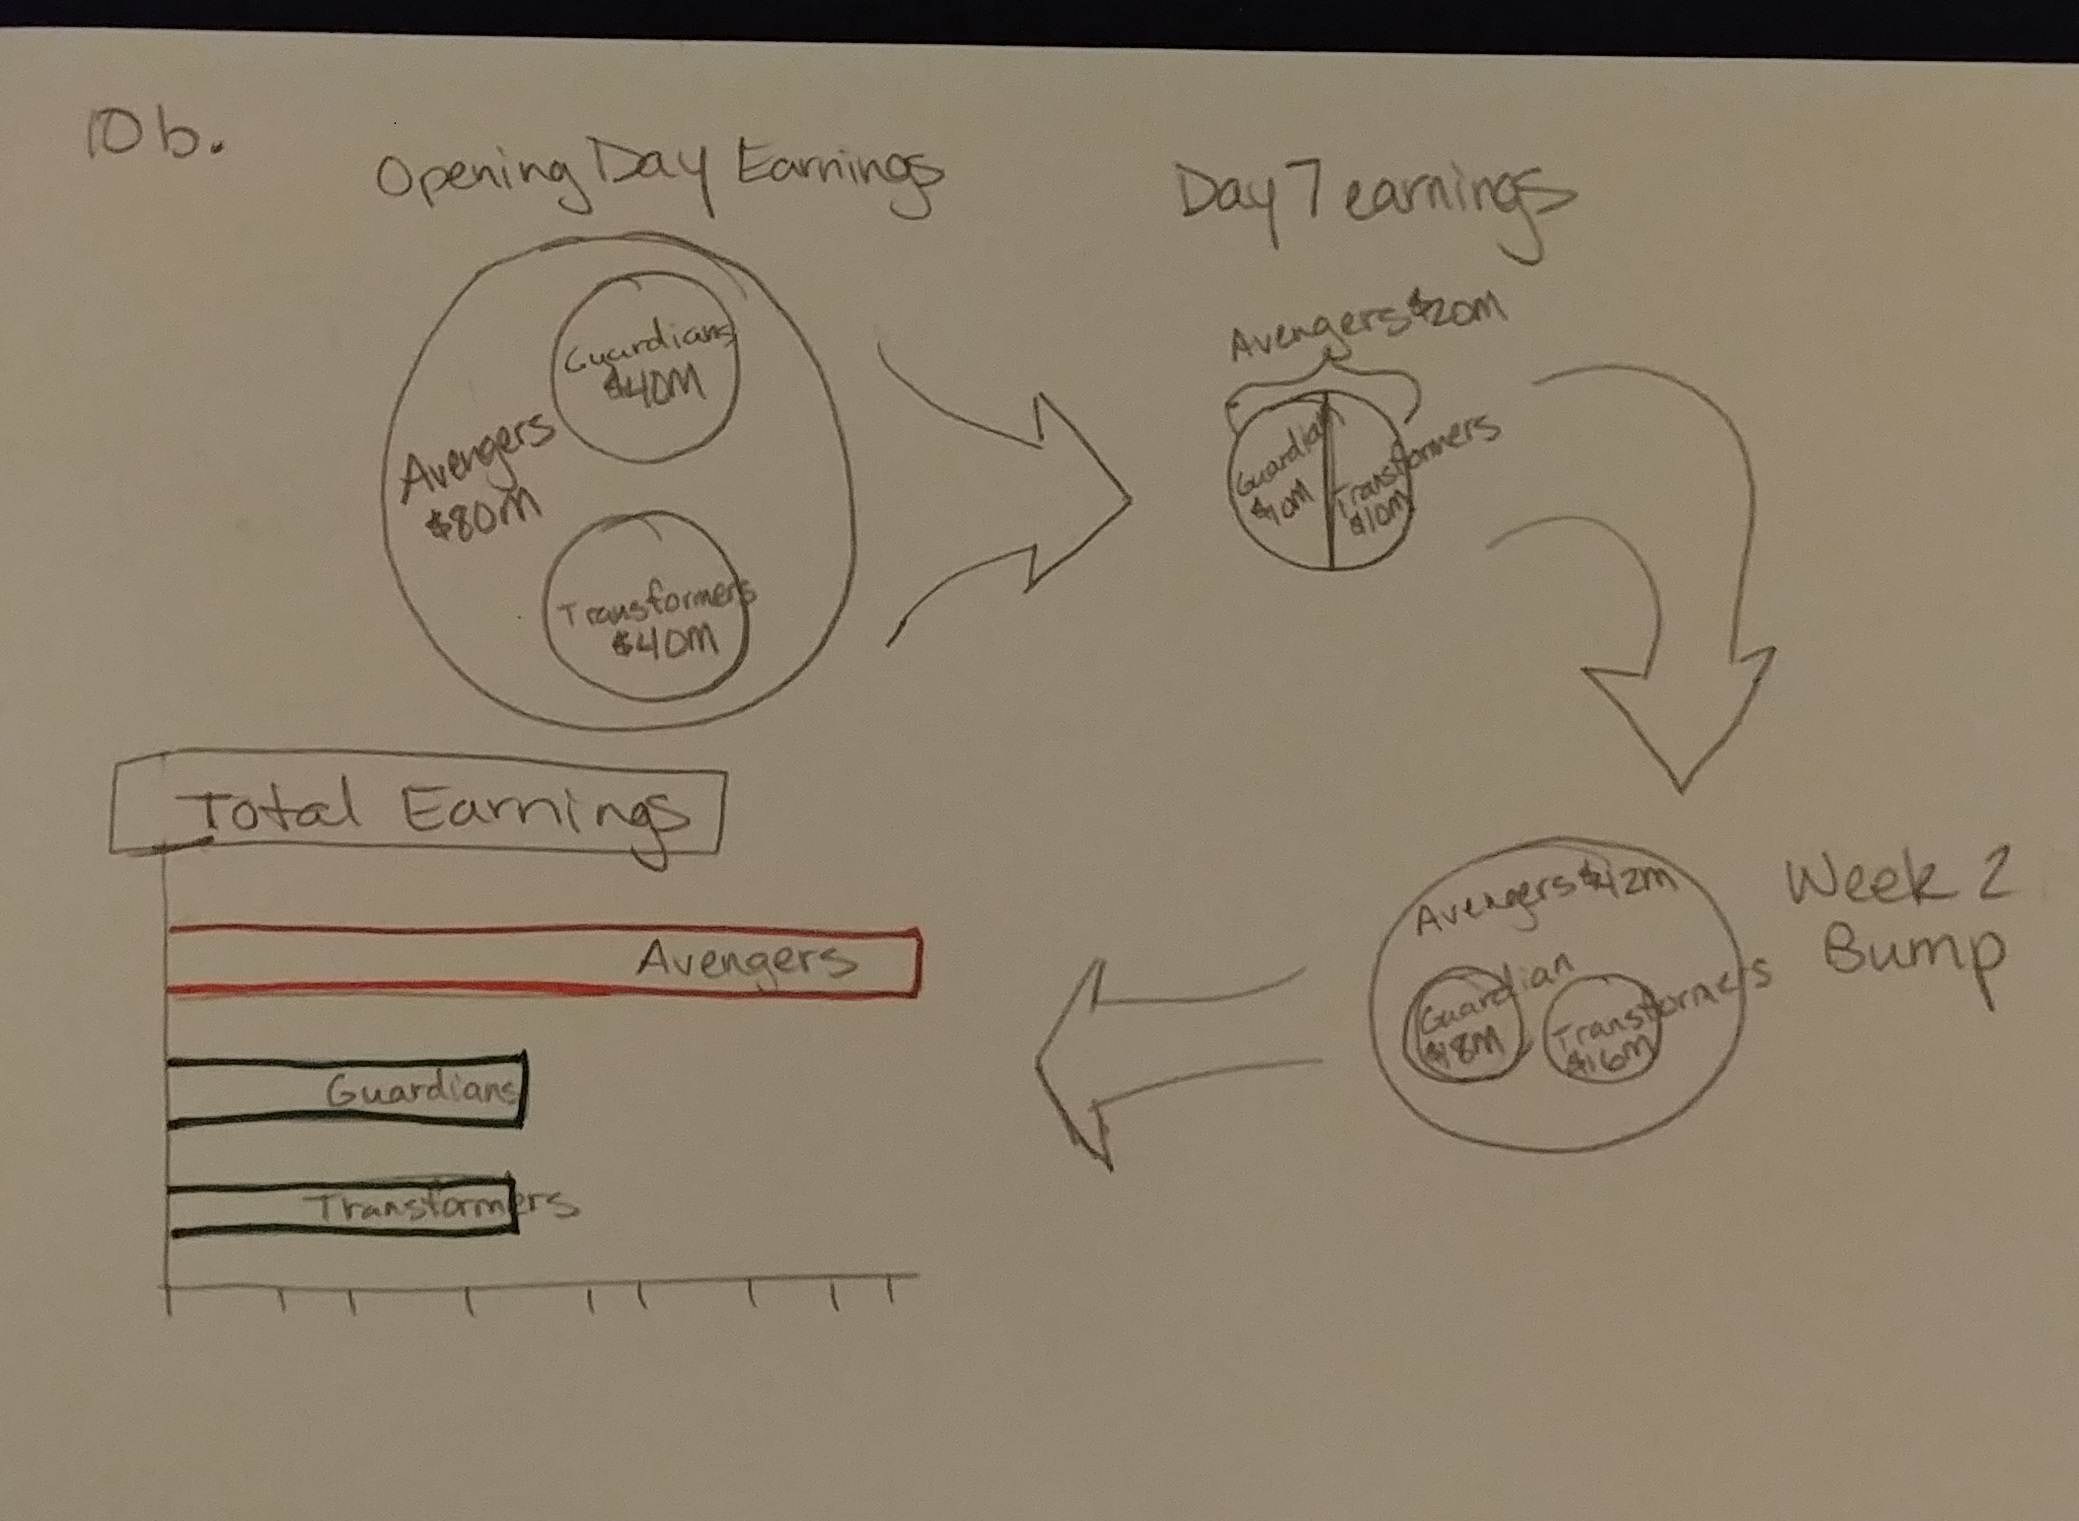 10b.
Opening Day Earnings
Avengers
$80M
Guardians
$40M
Transformers
$40M
Day 7 earnings
Avengers $20M
Guardian
$10M
Transformers
$10M
Week 2
Bump
Avengers $42M
Guardian
$18M
Transformers
$16M
Total Earnings
Avengers
Guardians
Transformers